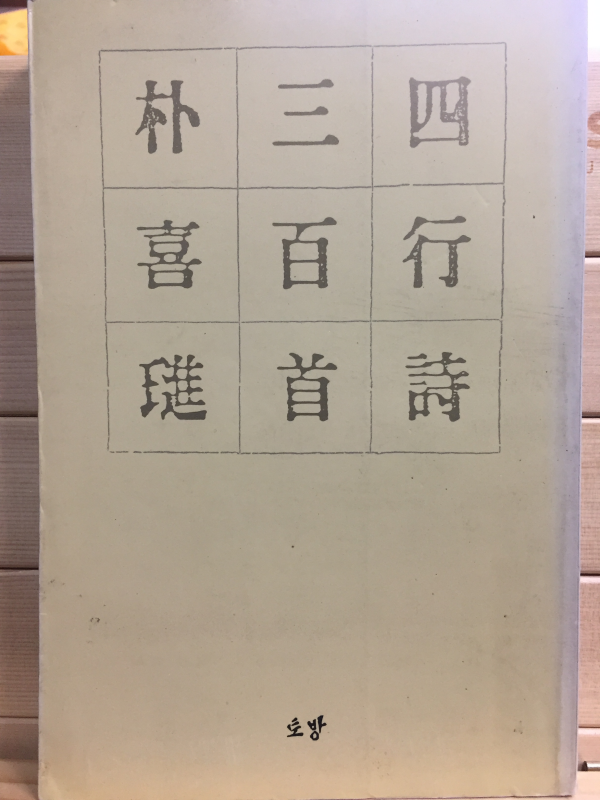 四行詩
三百首
朴喜璡
토방